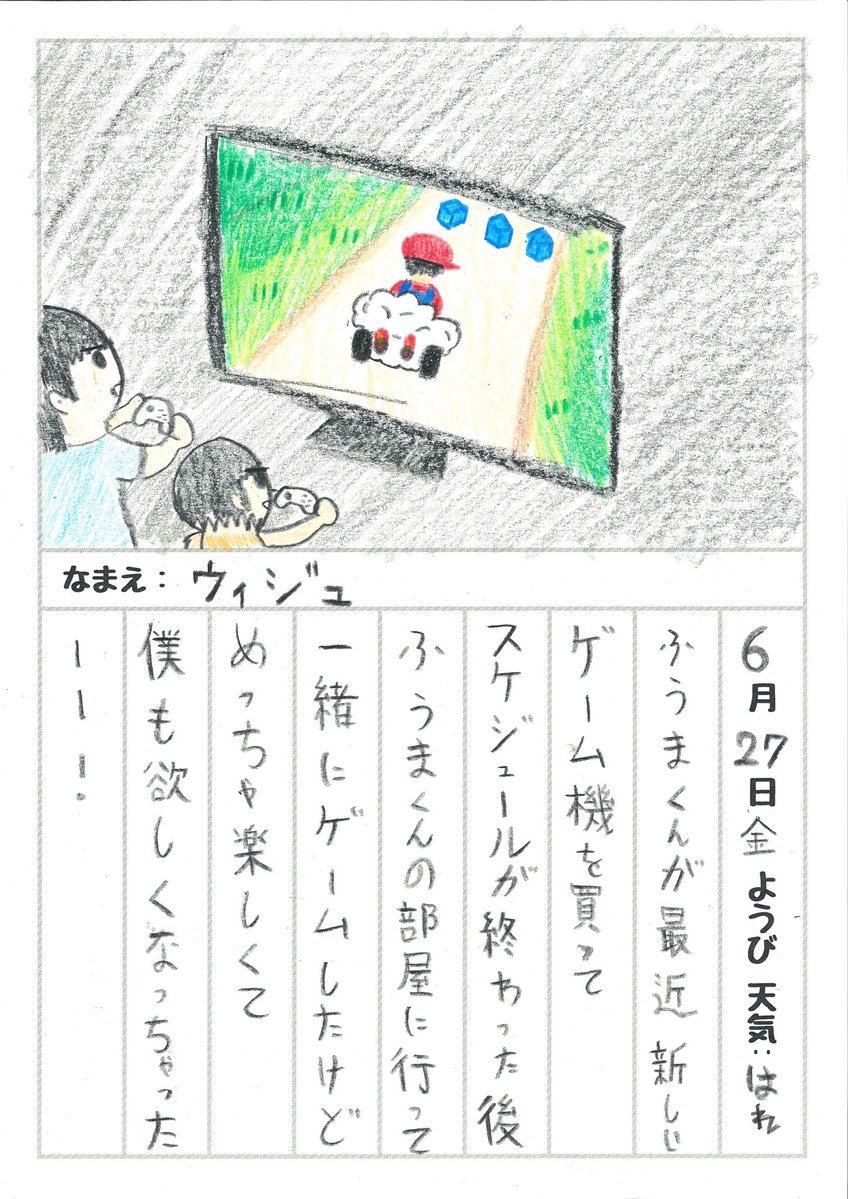 なまえ： ウィジュ
6月27日金ようび 天気：はれ
ふうまくんが最近 新しい
ゲーム機を買って
スケジュールが終わった後
ふうまくんの部屋に行って
一緒にゲームしたけど
めっちゃ楽しくて
僕も欲しくなっちゃった
ーー！